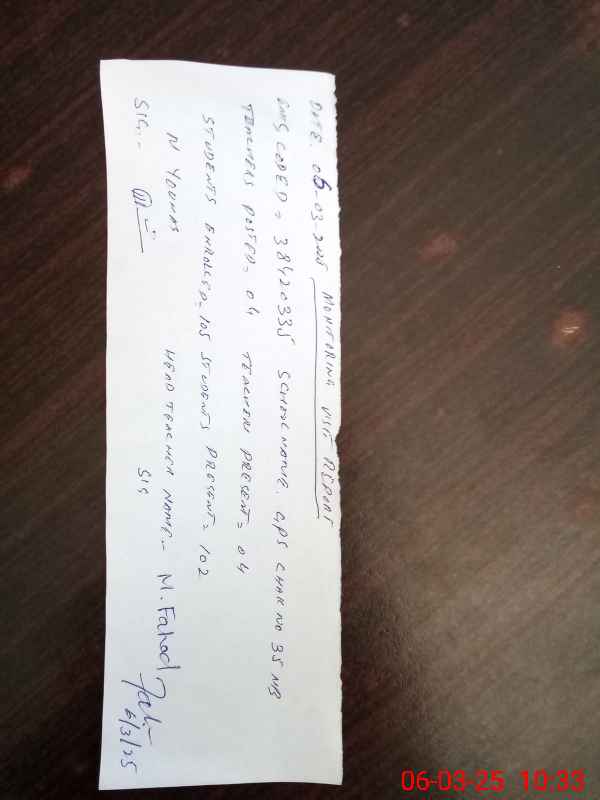 DATE. 06-03-2025 MONITORING VISIT REPORT
EMIS CODED = 38420335 SCHOOL NAME. GPS CHAK NO 35 MB
TEACHERS POSTED = 04 TEACHERS PRESENT = 04
STUDENTS ENROLED = 105 STUDENTS PRESENT = 102
M YOUNAS HEAD TEACHER NAME:- M. Fahad
SIG:- SIG
6/3/25
06-03-25 10:33